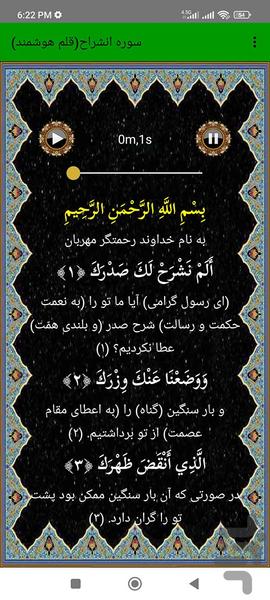 6:22 PM
سوره انشراح(قلم هوشمند)
0m,1s
بِسْمِ اللَّهِ الرَّحْمَنِ الرَّحِيمِ
به نام خداوند رحمتگر مهربان
أَلَمْ نَشْرَحْ لَكَ صَدْرَكَ ﴿۱﴾
(ای رسول گرامی) آیا ما تو را (به نعمت
حکمت و رسالت) شرح صدر (و بلندی همّت)
عطا نکردیم؟ (۱)
وَوَضَعْنَا عَنْكَ وِزْرَكَ ﴿۲﴾
و بار سنگین (گناه) را (به اعطای مقام
عصمت) از تو برداشتیم. (۲)
الَّذِي أَنْقَضَ ظَهْرَكَ ﴿۳﴾
در صورتی که آن بار سنگین ممکن بود پشت
تو را گران دارد. (۳)